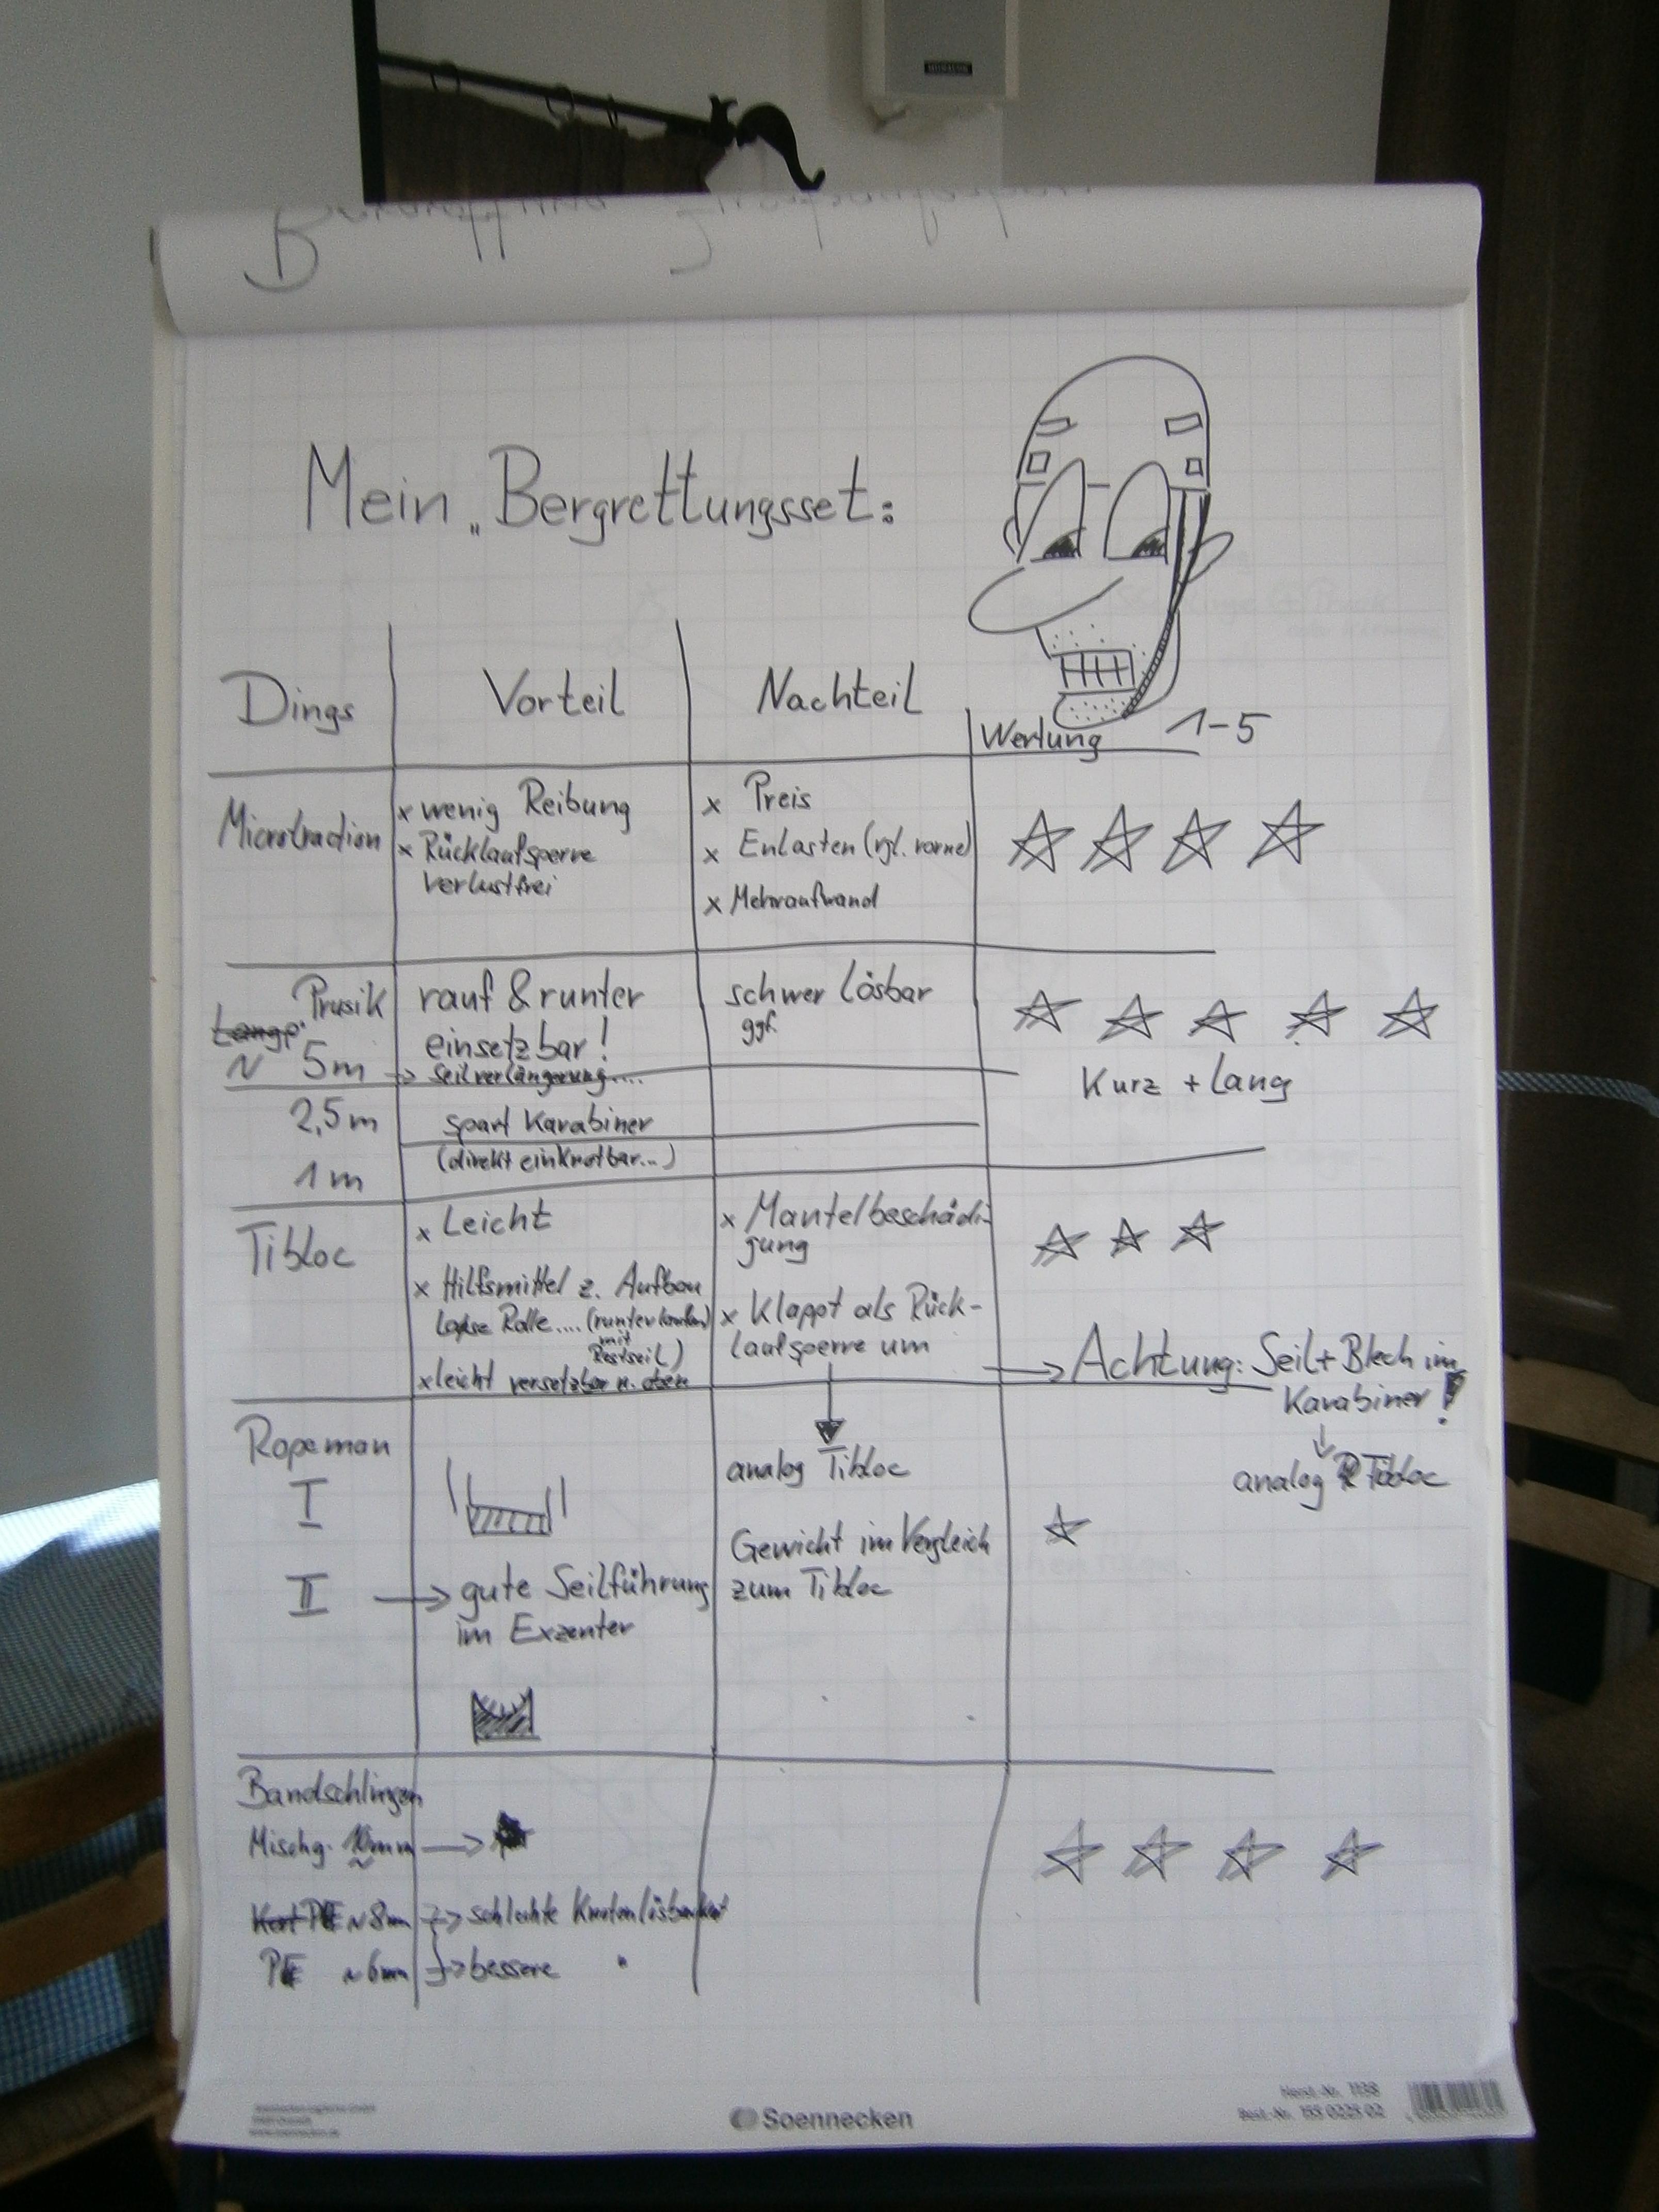 Mein „Bergrettungsset:
Dings
Vorteil
Nachteil
Wertung 1-5
Microtraction
x wenig Reibung
x Rücklaufsperre
verlustfrei
x Preis
x Enlasten (vgl. vorne)
x Mehraufwand
Prusik
Lange
~ 5m
rauf & runter
einsetzbar!
-> Seilverlängerung....
schwer lösbar
ggf.
Kurz + Lang
2,5m
spart Karabiner
1m
(direkt einknotbar...)
Tibloc
x Leicht
x Hilfsmittel z. Aufbau
Lose Rolle.... (runterlaufen)
mit
Restseil)
x leicht versetzbar n. oben
x Mantelbeschädi-
gung
x Klappt als Rück-
laufsperre um
-> Achtung: Seil + Blech im
Karabiner!
analog Tibloc
Ropeman
I
II
-> gute Seilführung
im Exzenter
analog Tibloc
Gewicht im Vergleich
zum Tibloc
Bandschlingen
Mischg. 10mm ->
PE ~ 8mm -> schlechte Knotenlösbarkeit
PE ~ 6mm -> bessere "
Soennecken
Herst.-Nr. 1138
Best.-Nr. 155 0225 02